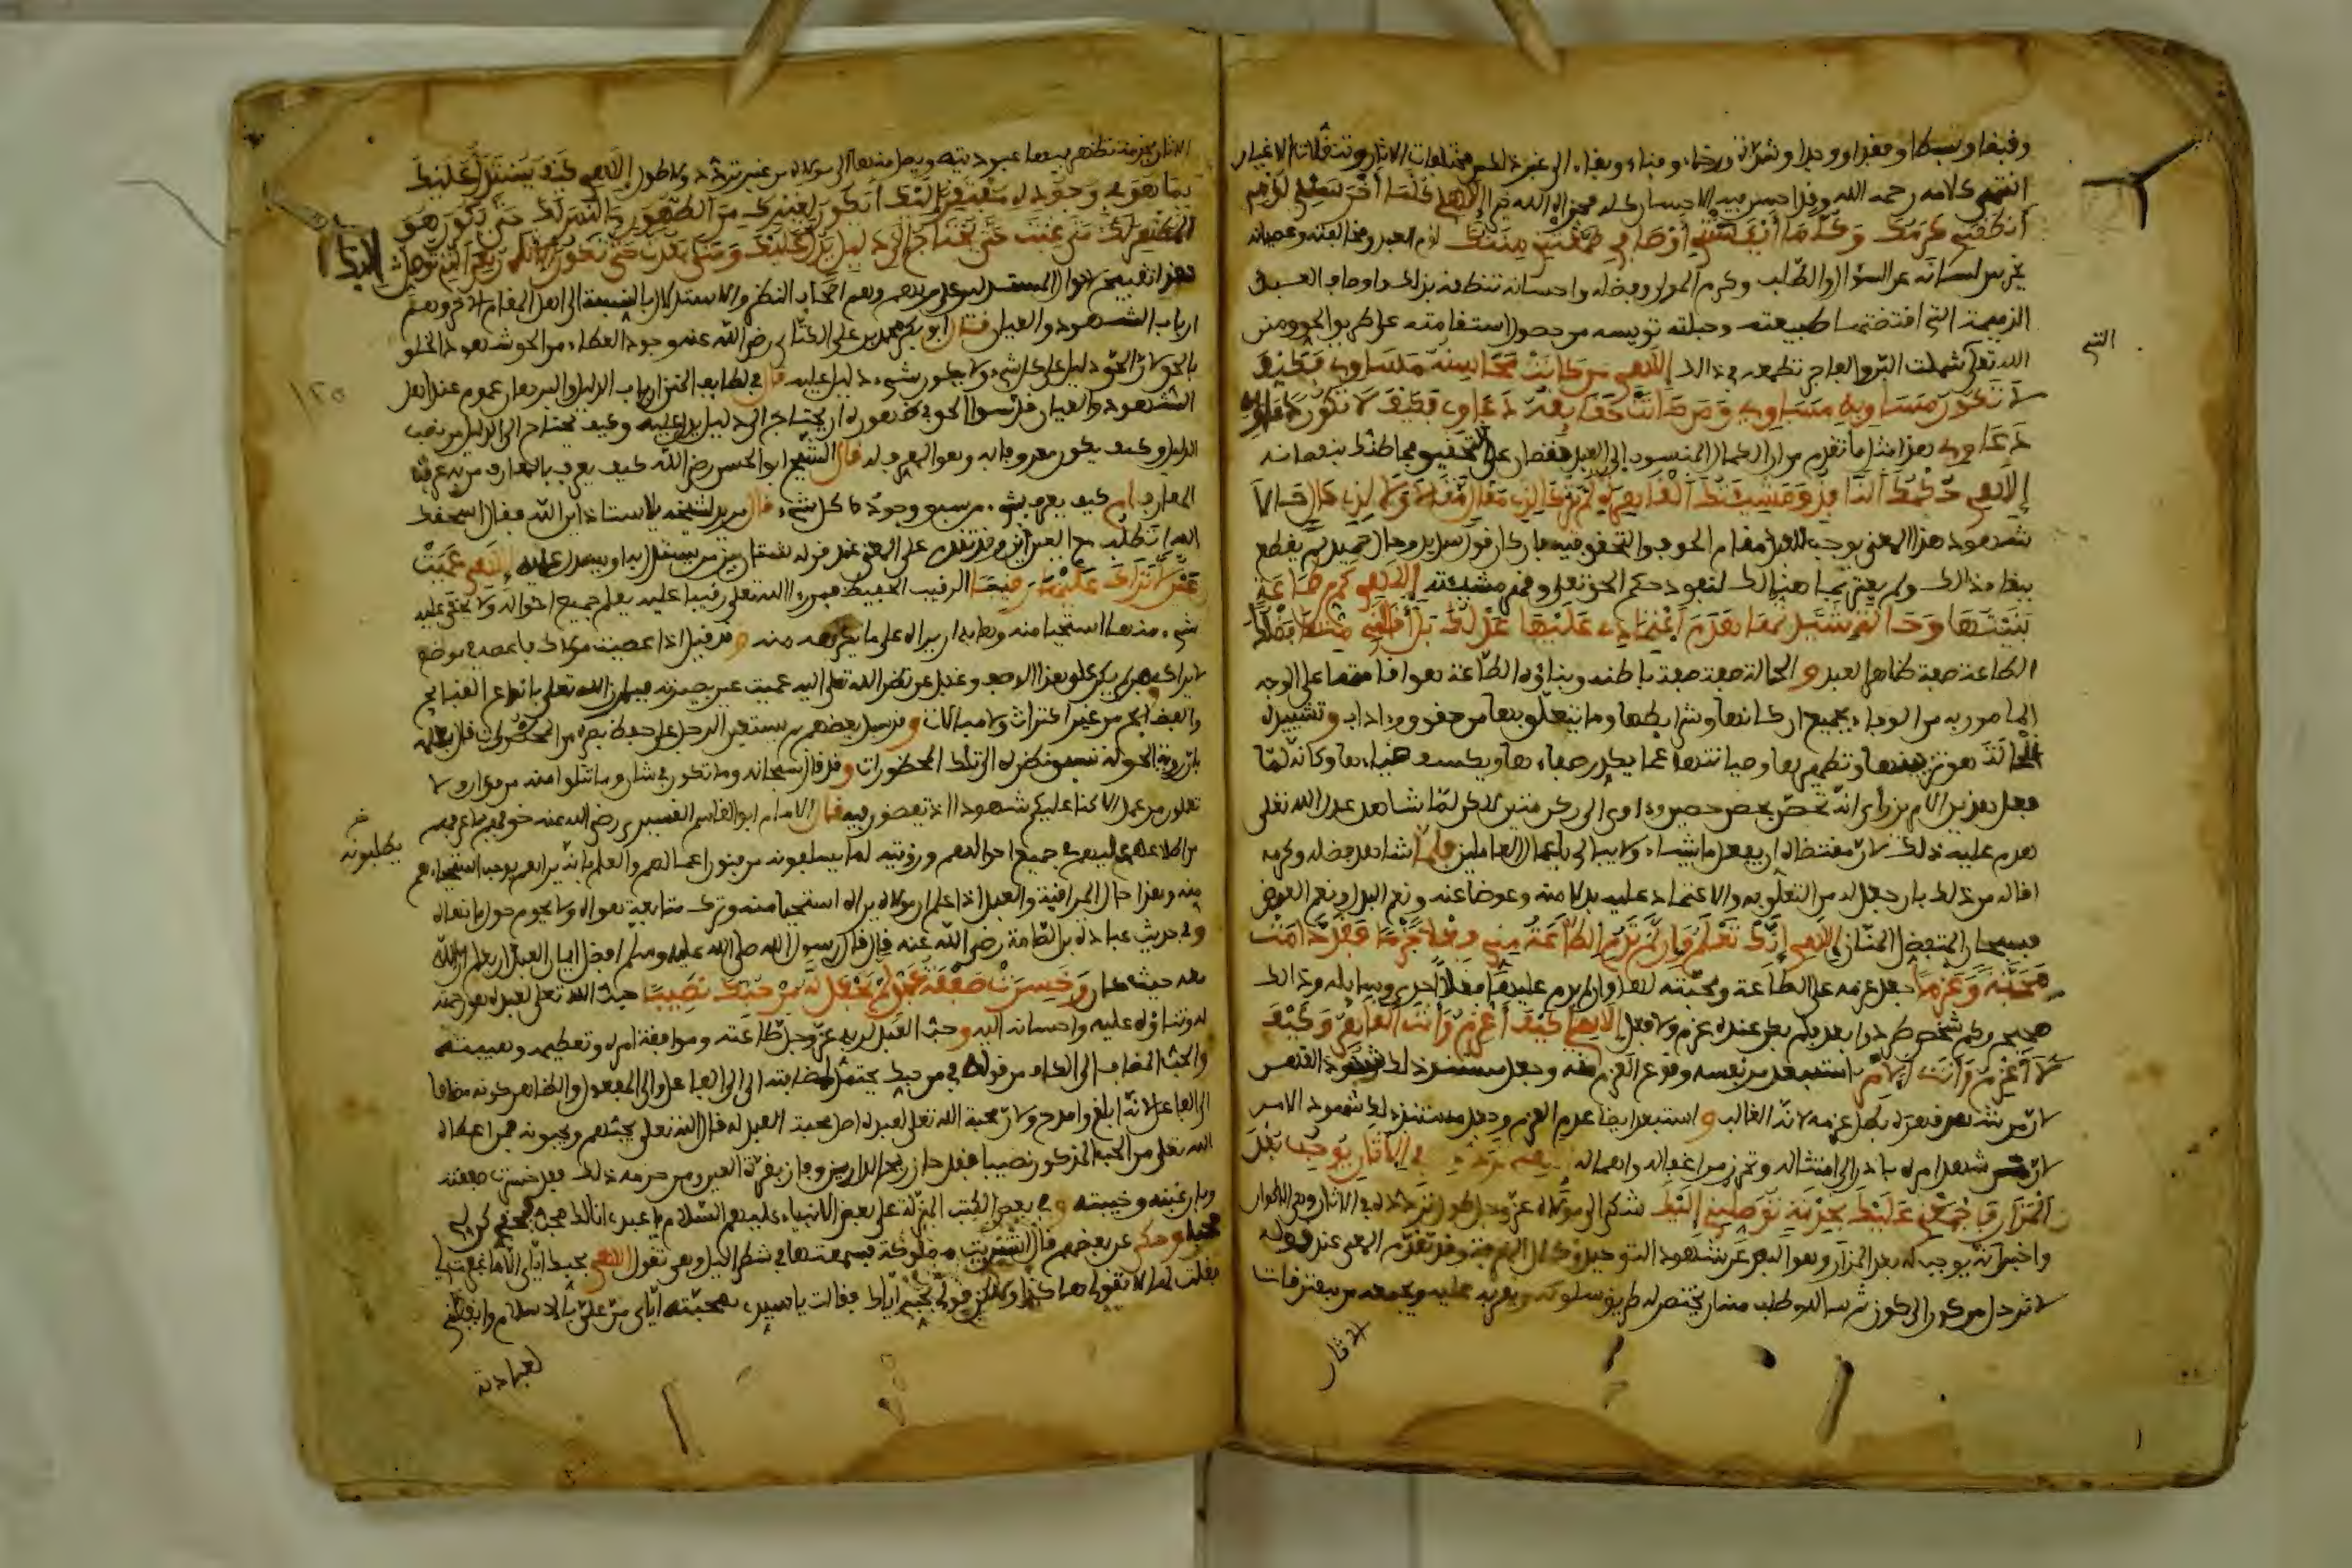 وقبضا وبسطا وفقدا ووجدا وشدة ورخاء وفناء وبقاء الى غير ذلك من مختلفات الاثار وتنقلات الاغيار
انتهى كلامه رحمه الله وقد احسن فيه الاحسان كله فجزاه الله خيرا الاهي كلما أخرسني لؤمي
أنطقني كرمك وكلما أيأستني أوصافي أطمعتني مننك لؤم العبد ومخالفته وعصيانه
يخرس لسانه عن السؤال والطلب وكرم المولى وفضله واحسانه تنطقه بذلك واوصاف العبد
الذميمة التي اقتضتها طبيعته وجبلته تويسه من حصول استقامته على طريق الحق ومنن
التي
الله تعلى شملت البر والفاجر تطمعه في ذلك إلاهي من كانت محاسنه مساوي فكيف
لا تكون مساويه مساوي ومن كانت حقايقه دعاوي فكيف لا تكون دعاويه
دعاوي هذا مثل ما تقدم من ان الكمال المنسوب الى العبد نقصان على التحقيق فما ظنك بنقصانه
إلاهي حكمك النافذ ومشيئتك القاهرة لم يتركا لذي مقال مقالا ولا لذي حال حالا
شهود هذا المعنى يوجب للعبد مقام الخوف والتحقق فيه فان كان ذا قول سديد وحال حميد لم يقطع
ببقاء ذلك ولم يغتر بما هنالك لنفوذ حكم الحق تعلى وقهر مشيئته إلاهي كم من طاعة
بنيتها وحالة شيدتها هدم اعتمادي عليها عدلك بل أقالني منها فضلك
الطاعة صفة ظاهر العبد و الحالة صفة باطنه وبناؤه الطاعة هو اقامتها على الوجه
المامور به من الوفاء بجميع اركانها وشرايطها وما يتعلق بها من حقوق واداب وتشييده
الحالة هو تزيينها وتطهيرها وصيانتها عما يكدر صفاءها ويكسف ضياءها وكانه لما
فعل هذين الامرين رأى انه تحصن بحصن حصين واوى الى ركن متين لاكن لما شاهد عدل الله تعلى
هدم عليه ذلك لان مقتضاه ان يفعل ما يشاء ولا يبالي باعمال العاملين فلما شاهد فضله وكرمه
اقاله من ذلك بان جعل له من التعلق به والاعتماد عليه بدلا منه وعوضا عنه ونعم البدل ونعم العوض
فسبحان المتفضل المنان إلاهي إنك تعلم وإن لم تدم الطاعة مني فعلا جزما فقد دامت
محبة وعزما جعل عزمه على الطاعة ومحبته لها وان لم يدم عليها فعلا احدى وسايله وذلك
صحيح وكم شخص طرد وابعد فلم يكن عنده عزم ولا فعل إلاهي كيف أعزم وأنت القاهر وكيف
لا أعزم وأنت الآمر استبعد من نفسه وقوع العزم منه وجعل مستند ذلك شهود القهر
لان من شهد قهره بطل عزمه لانه الغالب و استبعد ايضا عدم العزم وجعل مستند ذلك شهود الامر
لان من شهد امره بادر الى امتثاله وتحرز من اغفاله واهماله إلاهي ترددي في الآثار يوجب بعد
المزار فاجمعني عليك بخدمة توصلني إليك شكى الى مولاه عز وجل طول تردده في الاثار وهي الاكوان
واخبر انه يوجب له بعد المزار وهو البعد عن شهود التوحيد وكمال المعرفة وقد تقدم المعنى عند قوله
لا ترحل من كون الى كون ثم سال وطلب منه ان يختصر له طريق سلوكه ويقربه عليه ويجمعه من مفترقات
الاثار
الاثار بخدمة تظهر فيها عبوديته ويصل منها الى مولاه من غير تردد ولا طول إلاهي كيف يستدل عليك
بما هو في وجوده مفتقر إليك أيكون لغيرك من الظهور ما ليس لك حتى يكون هو
المظهر لك متى غبت حتى تحتاج إلى دليل يدل عليك ومتى بعدت حتى تكون الآثار هي التي توصل إليك
هذا تقبيح حال المستدلين على ربهم وهم اصحاب النظر والاستدلال بالنسبة الى اهل المقام الاخر وهم
ارباب الشهود والعيان قال ابو بكر محمد بن علي الكتاني رضي الله عنه وجود العطاء من الحق شهود الحق
بالحق لان الحق دليل على كل شيء ولا يكون شيء دليلا عليه قال في لطايف المنن ارباب الدليل والبرهان عموم عند اهل
١٢٥
الشهود والعيان قدسوا الحق في ظهوره ان يحتاج الى دليل يدل عليه وكيف يحتاج الى الدليل من نصب
الدليل وكيف يكون معروفا به وهو المعرف له قال الشيخ ابو الحسن رضي الله كيف يعرف بالمعارف من به عرفت
المعارف ام كيف يعرف بشيء من سبق وجوده كل شيء قال مريد لشيخه يا استاذ اين الله فقال اسحقك
الله أتطلب مع العين اين وقد تقدم على المعنى عند قوله شتان بين من يستدل به او يستدل عليه إلاهي عميت
عين لا تراك عليها رقيبا الرقيب الحفيظ فمن راى الله تعلى رقيبا عليه يعلم جميع احواله ولا يخفى عليه
شيء منها استحيا منه وهابه ان يراه على ما يكرهه منه و قد قيل اذا عصيت مولاك فاعصه في موضع
لا يراك فيه ومن لم يكن على هذا الوصف وغفل عن نظر الله تعلى اليه عميت عين بصيرته فبارز الله تعلى بانواع القبايح
والفضايح من غير اكتراث ولا مبالات و قد سيل بعضهم بم يستعين الرجل على حفظ بصره من المحظورات قال بعلمه
بان رؤية الحق له تسبق نظره الى تلك المحظورات و قد قال سبحانه وما تكون في شان وما تتلوا منه من قران ولا
تعملون من عمل الا كنا عليكم شهودا اذ تفيضون فيه قال الامام ابو القاسم القشيري رضي الله عنه خوفهم بما عرفهم
يطلبونه
من اطلاعه عليهم في جميع احوالهم ورؤيته لما يسلفونه من فنون اعمالهم والعلم بانه يراهم يوجب استحياءهم
منه وهذا حال المراقبة والعبد اذا علم ان مولاه يراه استحيا منه وترك متابعة هواه ولا يحوم حول ما نهاه
وفي حديث عبادة بن الصامت رضي الله عنه قال قال رسول الله صلى الله عليه وسلم افضل ايمان العبد ان يعلم ان الله
معه حيث كان وخسرت صفقة عبد لم تجعل له من حبك نصيبا حب الله تعلى لعبده هو رحمته
له وثناؤه عليه واحسانه اليه و حب العبد لربه عز وجل طاعته وموافقة امره وتعظيمه وهيبته
والحب المضاف الى الكاف من قوله في من حبك يحتمل اضافته الى الفاعل والى المفعول والظاهر كونه مضافا
الى الفاعل لانه ابلغ وامدح ولان محبة الله تعلى لعبده اصل محبة العبد له قال الله تعلى يحبهم ويحبونه فمن اعطاه
الله تعلى من الحب المذكور نصيبا فقد حاز ربح الدارين وفاز بقرة العين ومن حرمه ذلك فقد خسرت صفقته
وبان غبنه وخيبته و في بعض الكتب المنزلة على بعض الانبياء عليهم السلام يا عبدي انا لك محب فبحقي كن لي
محبا وحكي عن بعضهم قال اشتريت مملوكة فسمعتها في شطر الليل وهي تقول إلاهي بحبك اياي الا ما غفرت لي
فقلت لها لا تقولي هكذا ولاكن قولي بحبي اياك فقالت يا سيدي بمحبته اياي من علي بالاسلام وايقظني
لعبادته